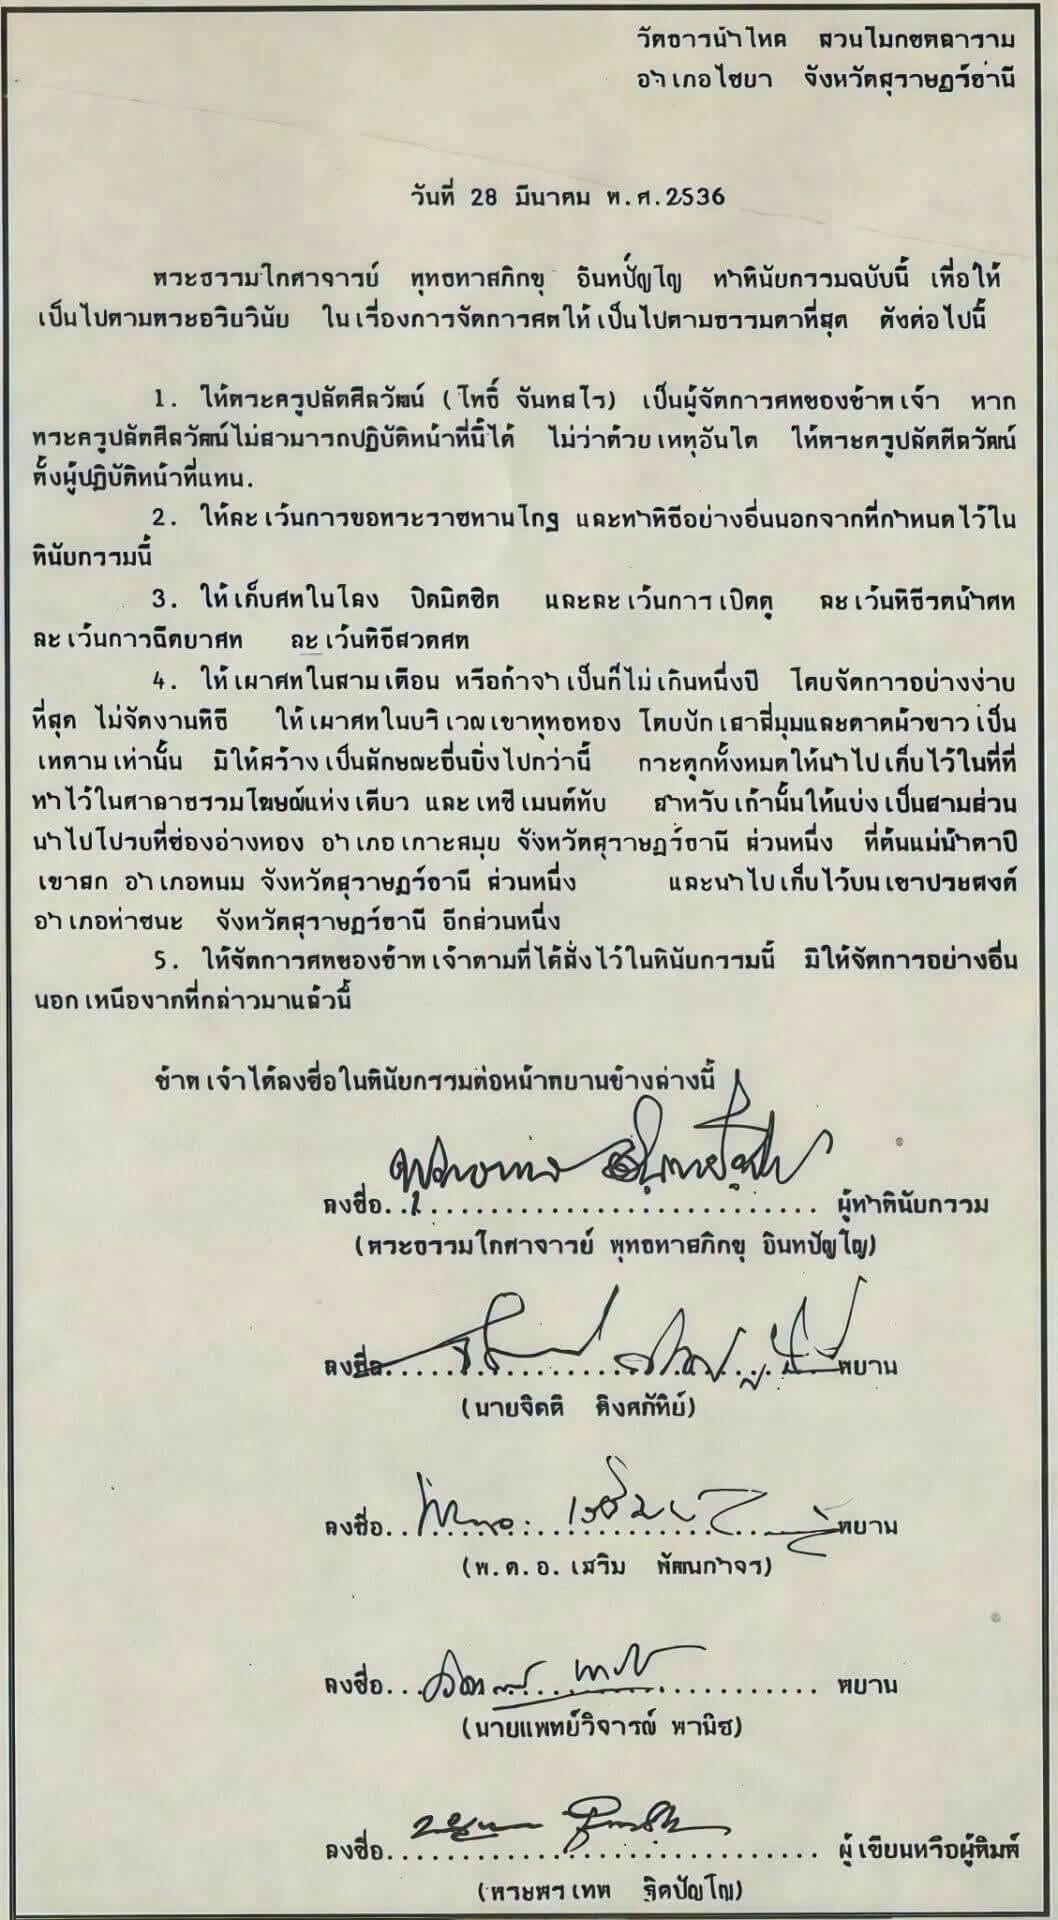 วัดธารน้ำไหล สวนโมกขพลาราม
อำเภอไชยา จังหวัดสุราษฎร์ธานี
วันที่ 28 มีนาคม พ.ศ.2536
พระธรรมโกศาจารย์ พุทธทาสภิกขุ อินทปัญโญ ทำพินัยกรรมฉบับนี้ เพื่อให้
เป็นไปตามพระอริยวินัย ในเรื่องการจัดการศพให้เป็นไปตามธรรมดาที่สุด ดังต่อไปนี้
1. ให้พระครูปลัดศีลวัฒน์ (โพธิ์ จันทสโร) เป็นผู้จัดการศพของข้าพเจ้า หาก
พระครูปลัดศีลวัฒน์ไม่สามารถปฏิบัติหน้าที่นี้ได้ ไม่ว่าด้วยเหตุอันใด ให้พระครูปลัดศีลวัฒน์
ตั้งผู้ปฏิบัติหน้าที่แทน.
2. ให้ละเว้นการขอพระราชทานโกฐ และทำพิธีอย่างอื่นนอกจากที่กำหนดไว้ใน
พินัยกรรมนี้
3. ให้เก็บศพในโลง ปิดมิดชิด และละเว้นการเปิดดู ละเว้นพิธีรดน้ำศพ
ละเว้นการฉีดยาศพ ละเว้นพิธีสวดศพ
4. ให้เผาศพในสามเดือน หรือถ้าจำเป็นก็ไม่เกินหนึ่งปี โดยจัดการอย่างง่าย
ที่สุด ไม่จัดงานพิธี ให้เผาศพในบริเวณเขาพุทธทอง โดยปักเสาสี่มุมและดาดผ้าขาวเป็น
เพดานเท่านั้น มิให้สร้างเป็นลักษณะอื่นยิ่งไปกว่านี้ กระดูกทั้งหมดให้นำไปเก็บไว้ในที่ที่
ทำไว้ในศาลาธรรมโฆษณ์แห่งเดียว และเทซีเมนต์ทับ สำหรับเถ้านั้นให้แบ่งเป็นสามส่วน
นำไปโปรยที่ช่องอ่างทอง อำเภอเกาะสมุย จังหวัดสุราษฎร์ธานี ส่วนหนึ่ง ที่ต้นแม่น้ำตาปี
เขาสก อำเภอพนม จังหวัดสุราษฎร์ธานี ส่วนหนึ่ง และนำไปเก็บไว้บนเขาประสงค์
อำเภอท่าชนะ จังหวัดสุราษฎร์ธานี อีกส่วนหนึ่ง
5. ให้จัดการศพของข้าพเจ้าตามที่ได้สั่งไว้ในพินัยกรรมนี้ มิให้จัดการอย่างอื่น
นอกเหนือจากที่กล่าวมาแล้วนี้
ข้าพเจ้าได้ลงชื่อในพินัยกรรมต่อหน้าพยานข้างล่างนี้
ลงชื่อ............................ ผู้ทำพินัยกรรม
(พระธรรมโกศาจารย์ พุทธทาสภิกขุ อินทปัญโญ)
ลงชื่อ............................ พยาน
(นายจิตติ ติงศภัทิย์)
ลงชื่อ............................ พยาน
(พ.ต.อ.เสริม พัฒนกำจร)
ลงชื่อ............................ พยาน
(นายแพทย์วิจารณ์ พานิช)
ลงชื่อ............................ ผู้เขียนหรือผู้พิมพ์
(พระพรเทพ ฐิตปัญโญ)